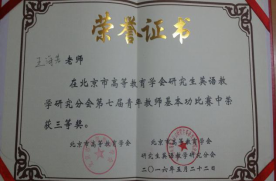 荣誉证书
老师
在北京市高等教育学会研究生英语教
学研究分会第七届青年教师基本功比赛中荣
获三等奖。
北京市高等教育学会
北京市高等教育学会
研究生英语教学研究分会
二〇一六年五月二十二日